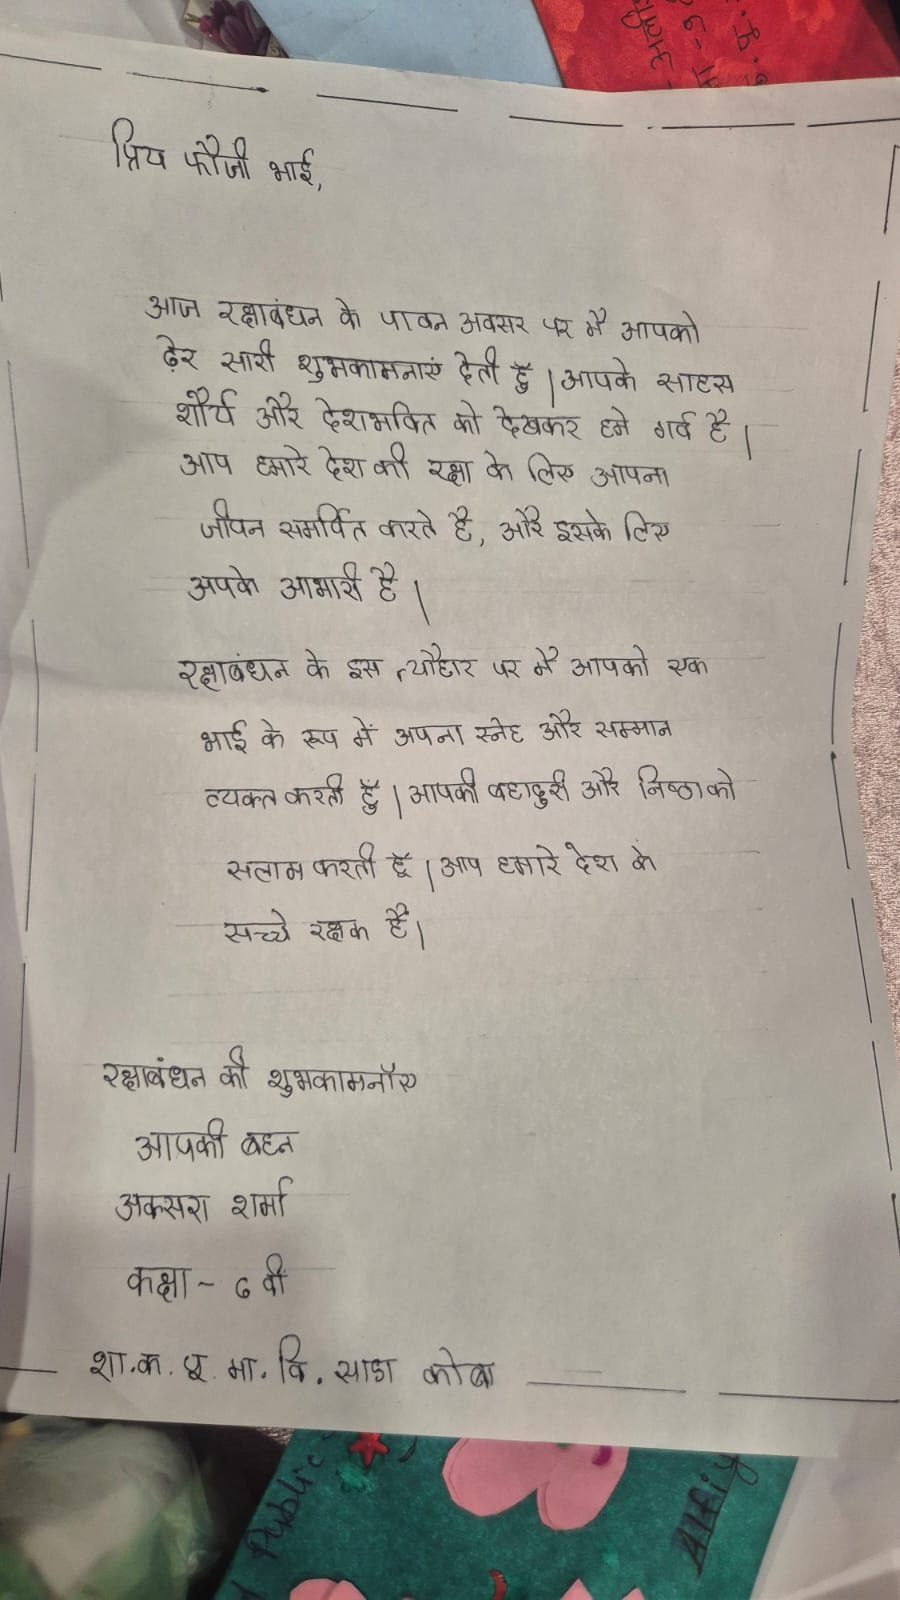 प्रिय फौजी भाई,
आज रक्षाबंधन के पावन अवसर पर मै आपको
ढ़ेर सारी शुभकामनाएं देती हूँ | आपके साहस
शौर्य और देशभक्ति को देखकर हमे गर्व है |
आप हमारे देश की रक्षा के लिए आपना
जीवन समर्पित करते है, और इसके लिए
अपके आभारी है |
रक्षाबंधन के इस त्यौहार पर मै आपको एक
भाई के रूप में अपना स्नेह और सम्मान
व्यक्त करती हूँ | आपकी बहादुरी और निष्ठा को
सलाम करती हूँ | आप हमारे देश के
सच्चे रक्षक हैं |
रक्षाबंधन की शुभकामनाॅए
आपकी बहन
अकसरा शर्मा
कक्षा - 6 वी
शा. क. पू. मा. वि. साडा कोबा
Public
Alfiy